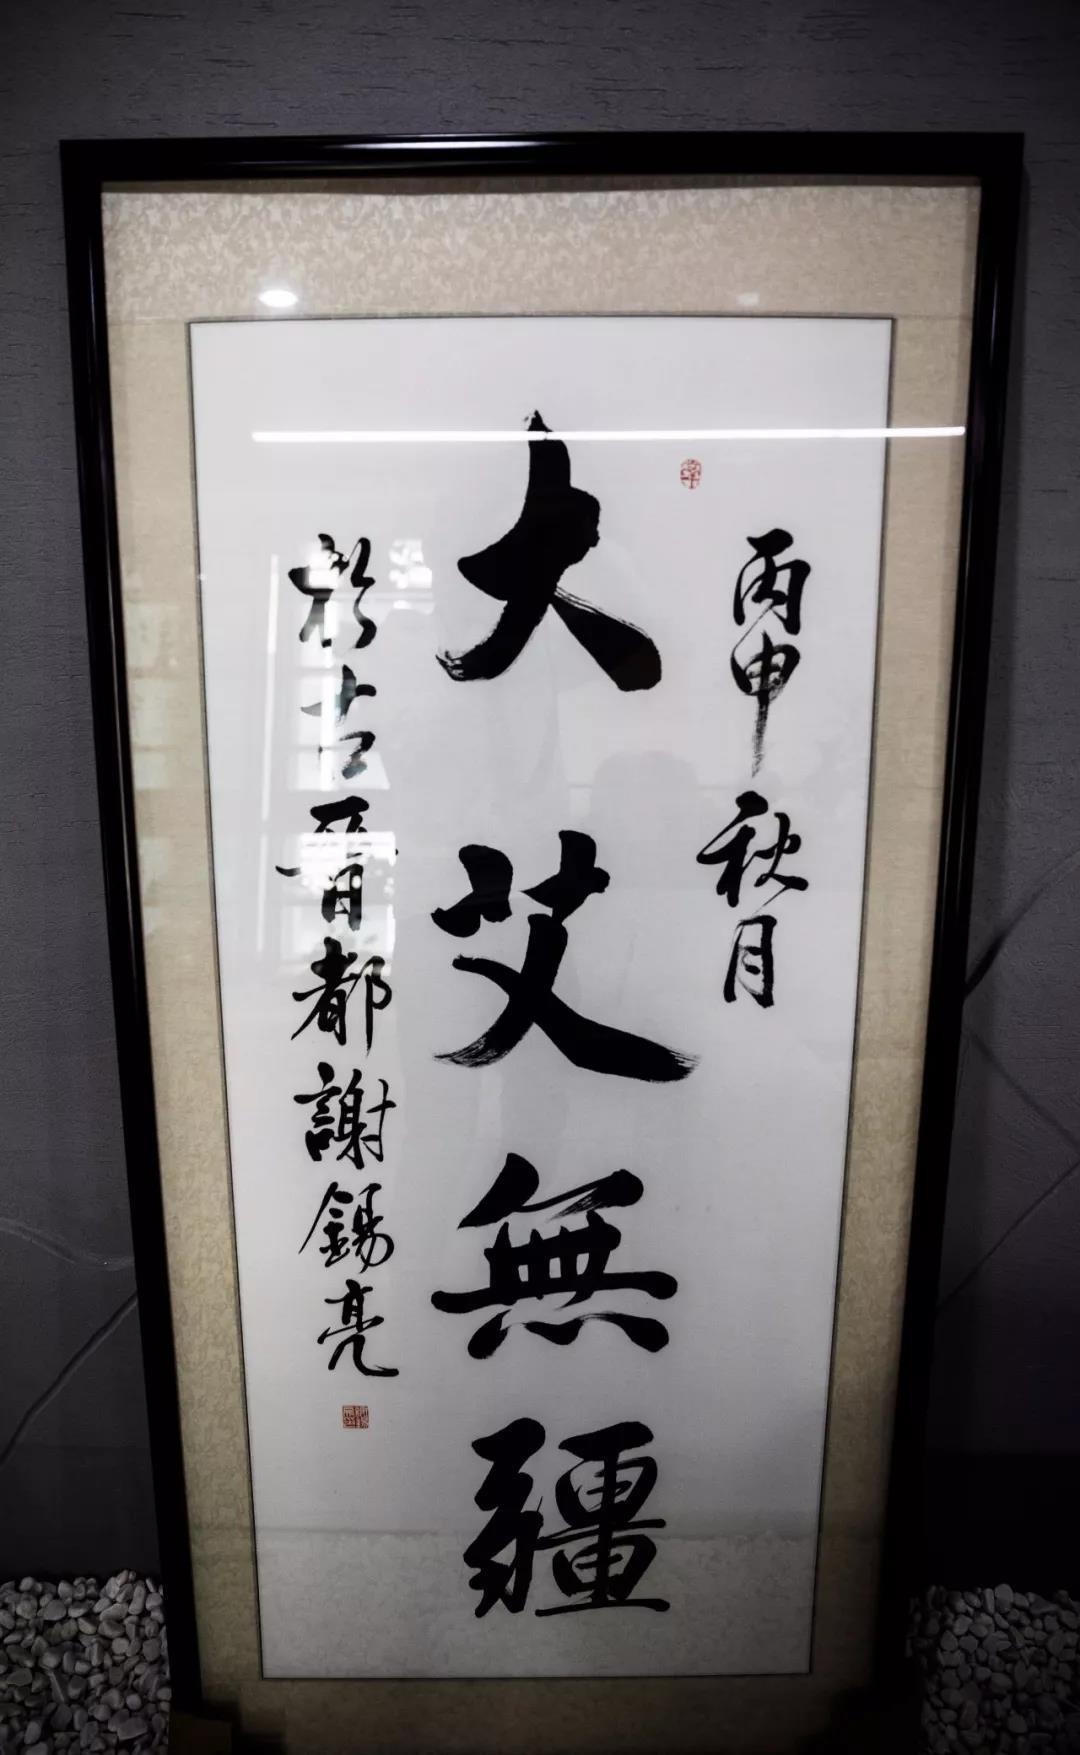 丙申秋月
大艾無疆
於古晉都謝錫亮